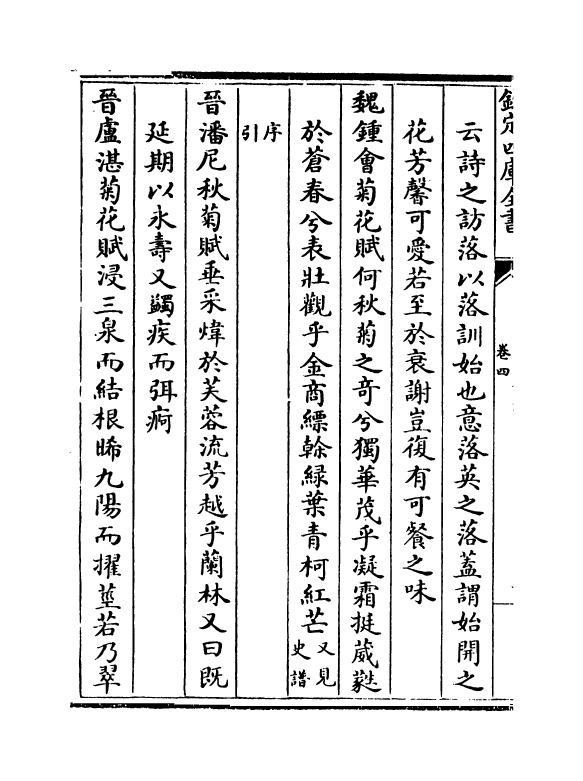 欽定四庫全書
卷四
云詩之訪落以落訓始也意落英之落蓋謂始開之
花芳馨可愛若至於衰謝豈復有可餐之味
魏鍾會菊花賦何秋菊之奇兮獨華茂乎凝霜挺葳蕤
於蒼春兮表壯觀乎金商縹榦緑葉青柯紅芒又見史譜
序引
晉潘尼秋菊賦垂采煒於芙蓉流芳越乎蘭林又曰既
延期以永壽又蠲疾而弭痾
晉盧湛菊花賦浸三泉而結根晞九陽而擢莖若乃翠